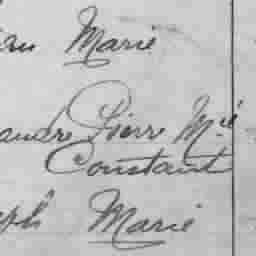 an Marie
andre Pierre M.ie
Constant
eph Marie